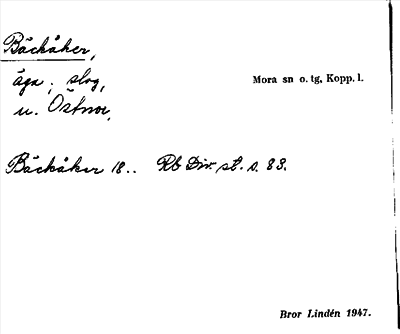 Bäckåker,
äga, slog,
Mora sn o. tg, Kopp. l.
u. Östnor,
Bäckåker 18.. Rb Div. st. s. 83.
Bror Lindén 1947.